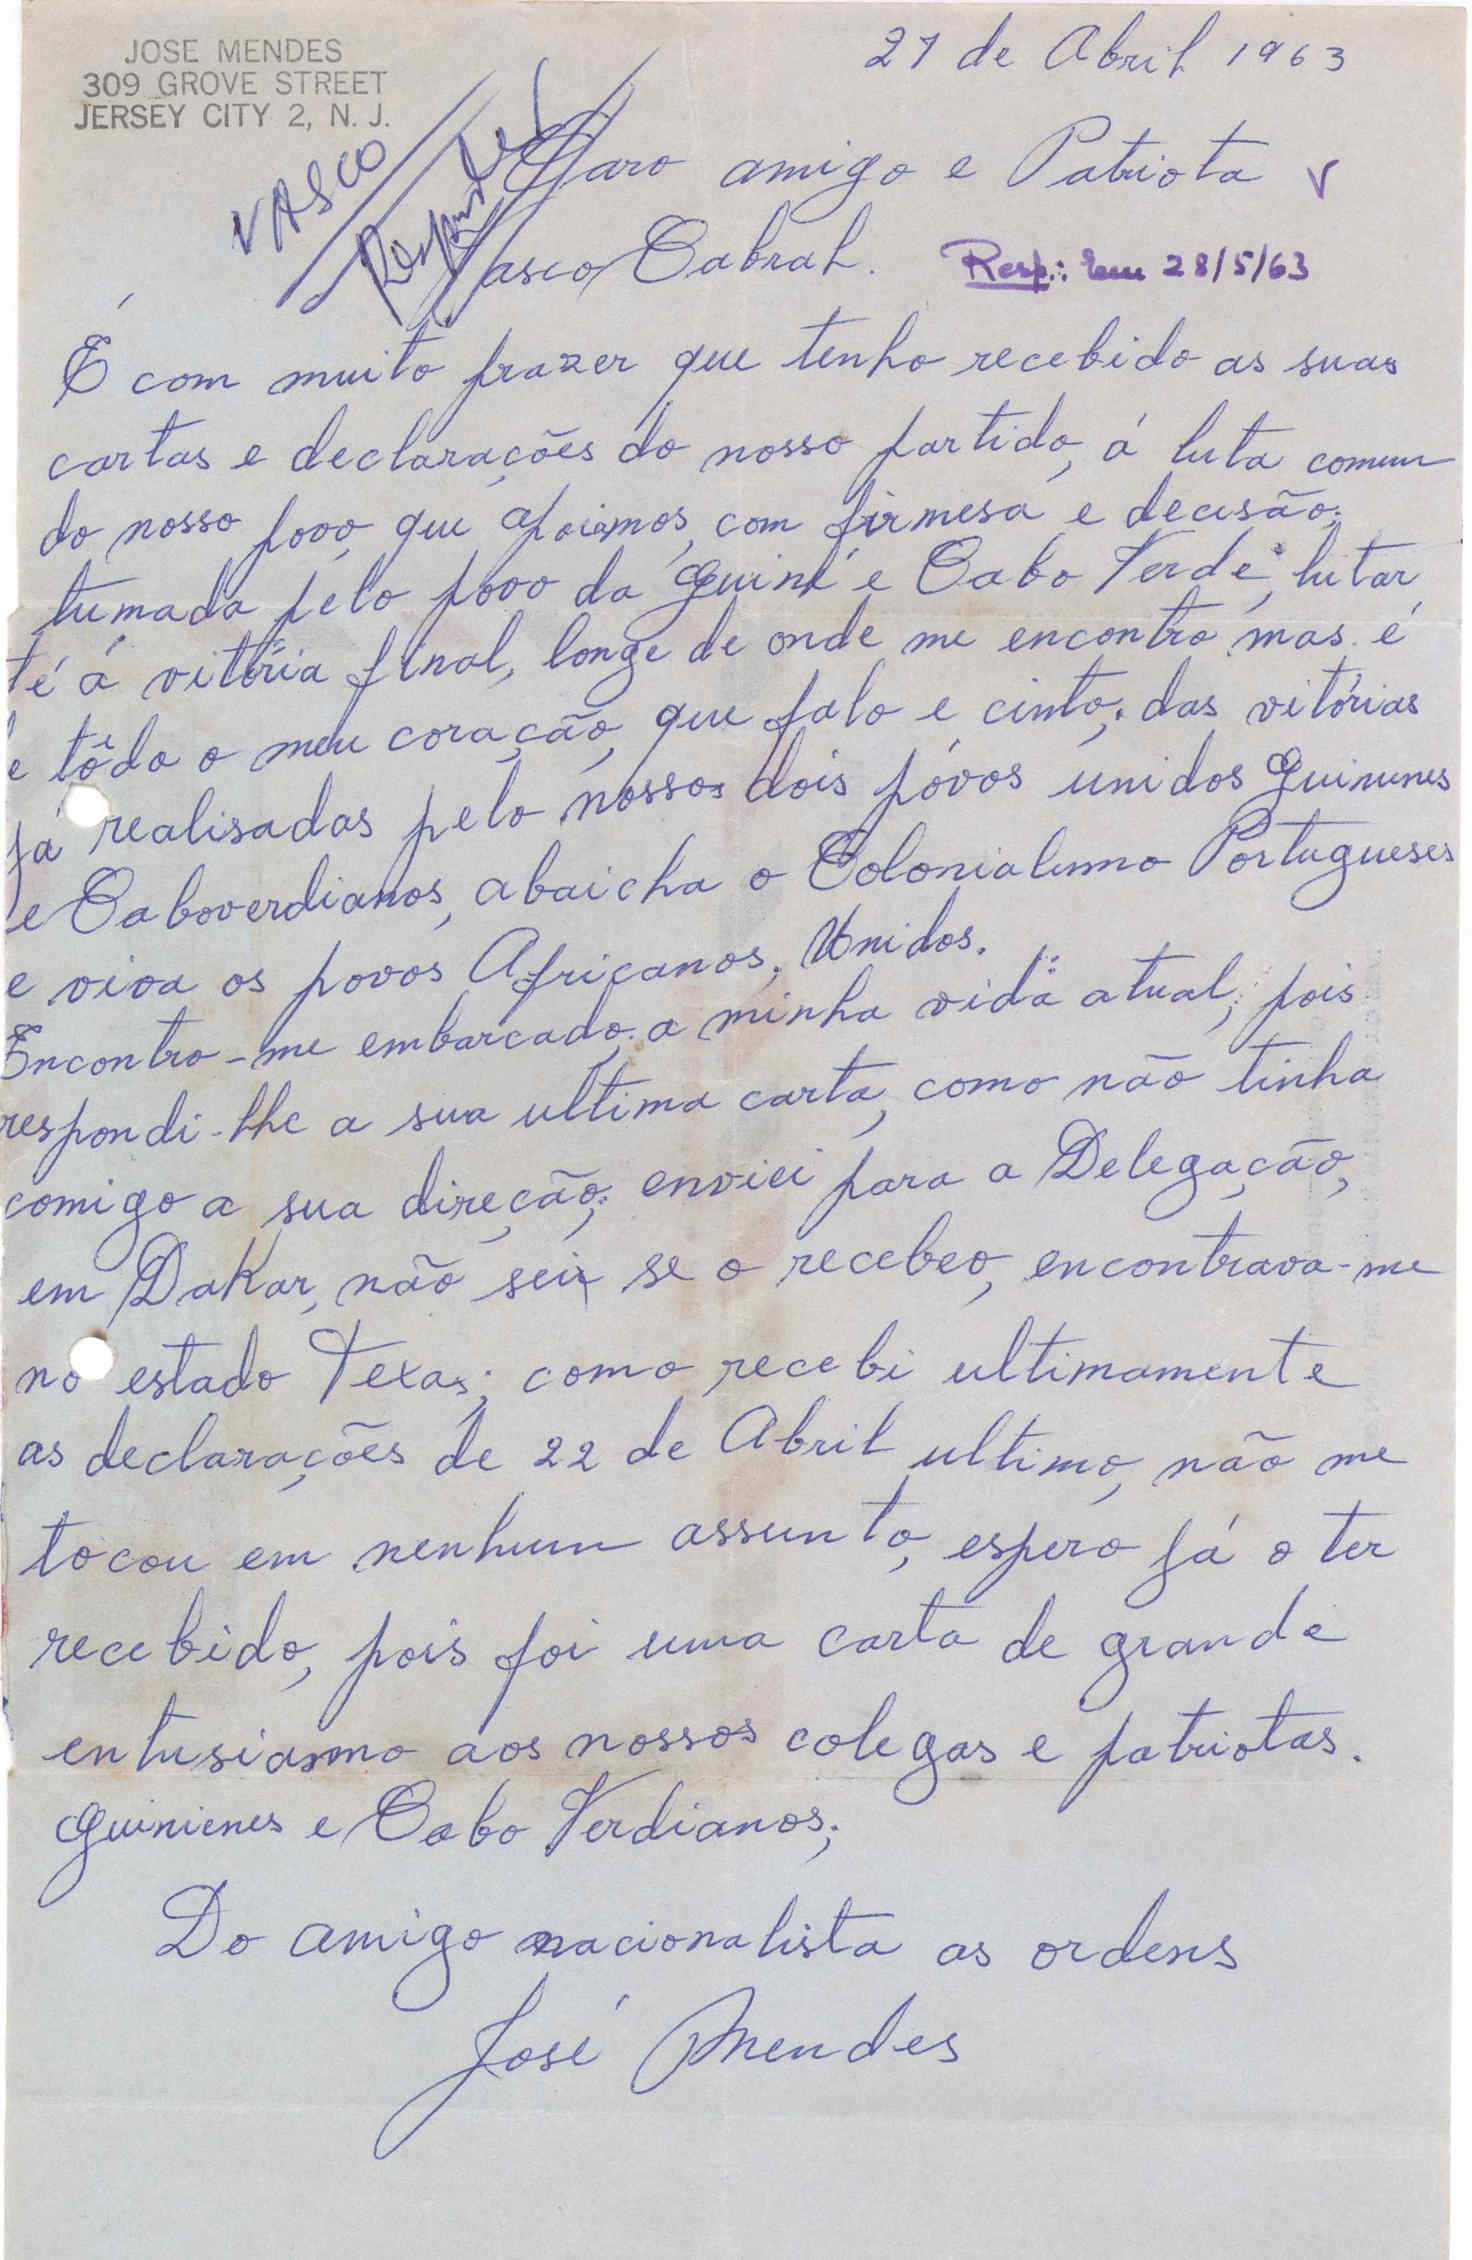 JOSE MENDES
309 GROVE STREET
JERSEY CITY 2, N. J.
27 de Abril 1963
VASCO
Responder
Caro amigo e Patriota V
Vasco Cabral.
Resp.: em 28/5/63
É com muito prazer que tenho recebido as suas
cartas e declarações do nosso partido, á luta comum
do nosso povo, que apoiamos, com firmesa e decisão;
tumada pelo povo da Guiné e Cabo Verde, lutar
té á vitória final, longe de onde me encontro mas é
e tôdo o meu coração, que falo e cinto; das vitórias
já realisadas pelo nossos dois póvos unidos Guinenes
e Caboverdianos, abaicha o Colonialismo Portugueses
e viva os povos Africanos, Unidos.
Encontro-me embarcado, a minha vida atual, pois
respondi-lhe a sua ultima carta, como não tinha
comigo a sua direção; enviei para a Delegação,
em Dakar, não sei se o recebeo, encontrava-me
no estado Texas; como recebi ultimamente
as declarações de 22 de Abril ultimo, não me
tocou em nenhum assunto, espero já o ter
recebido, pois foi uma carta de grande
entusiasmo aos nossos colegas e patriotas.
Guinienes e Cabo Verdianos;
Do amigo nacionalista as ordens
José Mendes